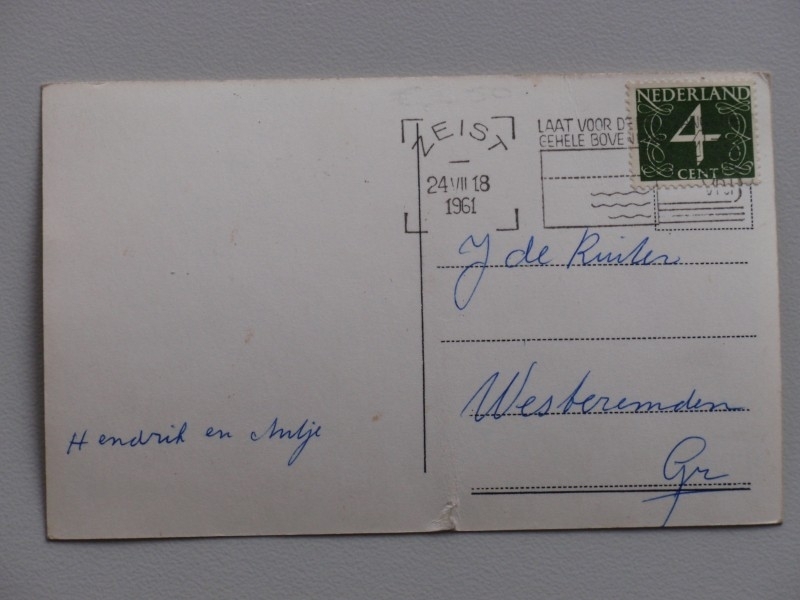 ZEIST
24 VII 18
1961
LAAT VOOR DE
GEHELE BOVEN
NEDERLAND
4
CENT
J de Ruiter
Westeremden
Gr
Hendrik en Antje